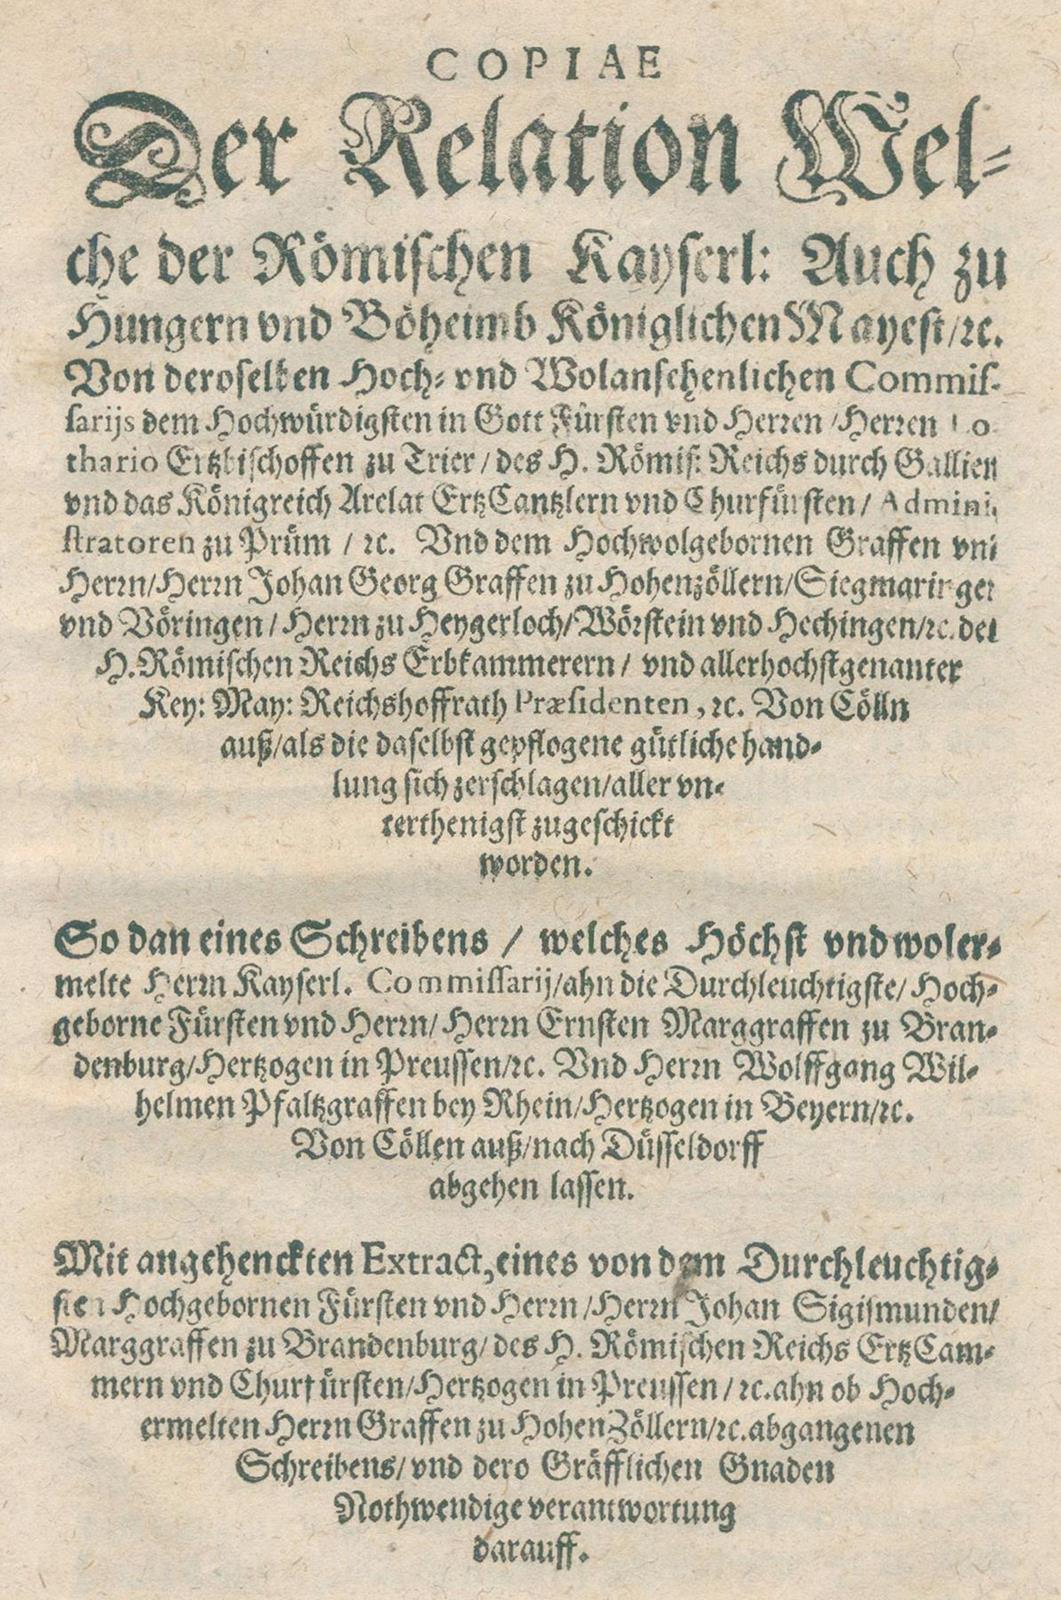 COPIAE
Der Relation Wel-
che der Römischen Kayserl: Auch zu
Hungern vnd Böheimb Königlichen Mayest/ꝛc.
Von deroselben Hoch- vnd Wolansehenlichen Commis-
sarijs dem Hochwürdigsten in Gott Fürsten vnd Herren /Herren Lo
thario Ertzbischoffen zu Trier / des H. Römis: Reichs durch Gallien
vnd das Königreich Arelat ErtzCantzlern vnd Churfürsten / Admini
stratoren zu Prüm / ꝛc. Vnd dem Hochwolgebornen Graffen vnd
Herrn/Herrn Johan Georg Graffen zu Hohenzöllern/Siegmaringen
vnd Vöringen / Herrn zu Heygerloch/Wörstein vnd Hechingen/ꝛc. des
H. Römischen Reichs Erbkammerern / vnd allerhochstgenanter
Key: May: Reichshoffrath Præsidenten, ꝛc. Von Cölln
auß/als die daselbst gepflogene gütliche hand-
lung sich zerschlagen/aller vn-
terthenigst zugeschickt
worden.
So dan eines Schreibens / welches Höchst vnd woler-
melte Herrn Kayserl. Commissarij/ahn die Durchleuchtigste/ Hoch-
geborne Fürsten vnd Herrn/ Herrn Ernsten Marggraffen zu Bran-
denburg/Hertzogen in Preussen/ꝛc. Vnd Herrn Wolffgang Wil-
helmen Pfaltzgraffen bey Rhein/Hertzogen in Beyern/ꝛc.
Von Cöllen auß/nach Düsseldorff
abgehen lassen.
Mit angehenckten Extract, eines von dem Durchleuchtig-
sten Hochgebornen Fürsten vnd Herrn /Herrn Johan Sigismunden/
Marggraffen zu Brandenburg/ des H. Römischen Reichs ErtzCam-
mern vnd Churfürsten/Hertzogen in Preussen / ꝛc. ahn ob Hoch-
ermelten Herrn Graffen zu HohenZöllern/ꝛc. abgangenen
Schreibens/ vnd dero Gräfflichen Gnaden
Nothwendige verantwortung
darauff.